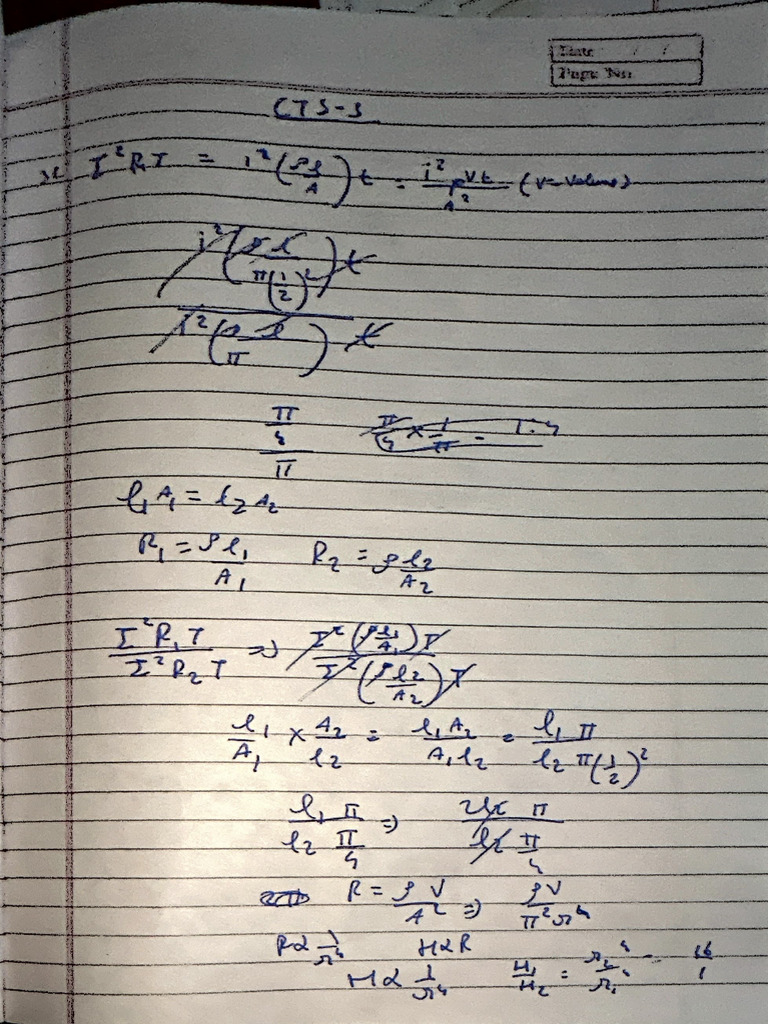 Date / /
Page No.
CTS-3
I²RT = i²(ρl/A)t = i²ρVt/A² (V = Volume)
i²(ρl/π(1/2)²)t
i²(ρl/π)t
π/4/π π/4 × 1/π = 1:4
l₁A₁ = l₂A₂
R₁ = ρl₁/A₁ R₂ = ρl₂/A₂
I²R₁T/I²R₂T ⇒ I²(ρl₁/A₁)T/I²(ρl₂/A₂)T
l₁/A₁ × A₂/l₂ = l₁A₂/A₁l₂ = l₁π/l₂π(1/2)²
l₁π/l₂π/4 ⇒ π/l₂π/4
R = ρV/A² ⇒ ρV/π²r⁴
R∝1/r⁴ H∝R
H∝1/r⁴ H₁/H₂ = r₂⁴/r₁⁴ = 16/1